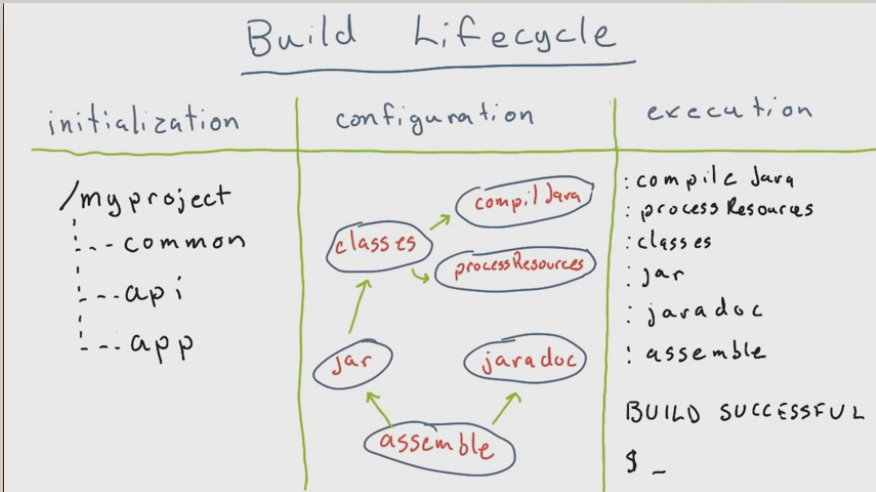 Build Lifecycle
initialization
/myproject
common
api
app
configuration
compilJava
classes
processResources
jar
javadoc
assemble
execution
:compileJava
:processResources
:classes
:jar
:javadoc
:assemble
BUILD SUCCESSFUL
$ _